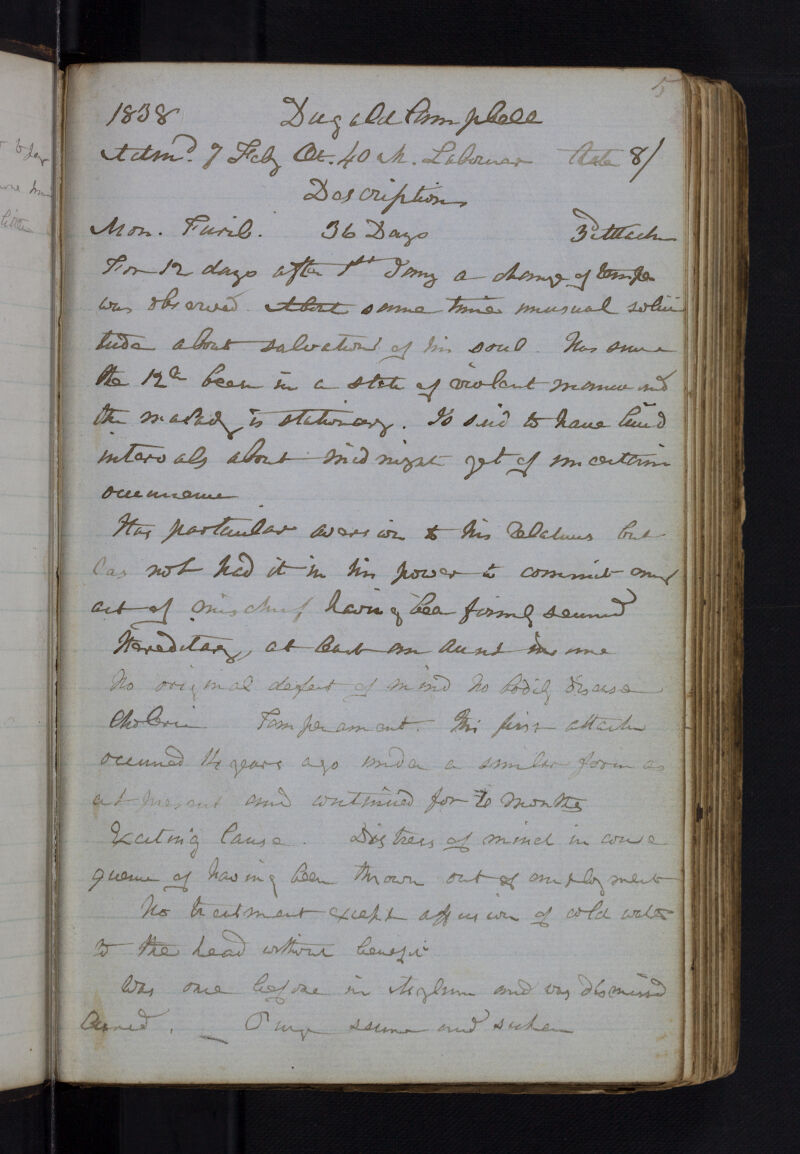 5
1838 Dugald Campbell
Admd. 7 Feby Æt. 40 M. Labourer Rate 8/
Description
Mon. Furib. 36 Days 3d Attack
For 12 days after 1st Jany a change of temper
was observed. About same time unusual solici
tude about salvation of his soul. Has since
the 12th been in a state of violent mania and
the malady is stationary. Is said to have lucid
intervals about midnight yet of uncertain
occurrence
Has particular aversion to his relatives but
has not had it in his power to commit any
act of mischief having been firmly secured
Hereditary, at least an Aunt insane
No original defect of mind No bodily disease
Choleric Temperament. His first attack
occurred 14 years ago under a similar form as
at present and continued for 10 months
Exciting Cause. Distress of mind in conse
quence of having been thrown out of employment
No treatment except affusion of cold water
to the head without benefit
Was once before in Asylum and was dismissed
Cured. _ Purge
and
to say